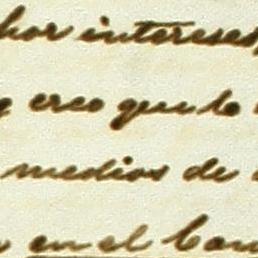 por intereses,
creo que lo
medios de
en el